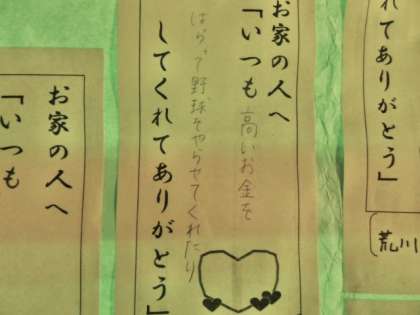 れてありがとう」
荒川
お家の人へ
「いつも高いお金を
はらって野球をやらせてくれたり
してくれてありがとう」
お家の人へ
「いつも